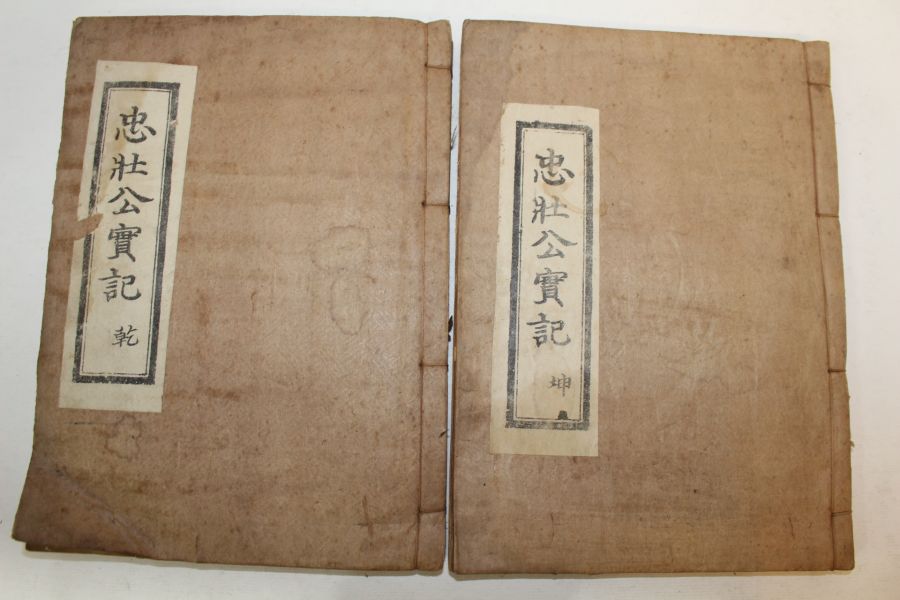 忠壯公實記
乾
忠壯公實記
坤